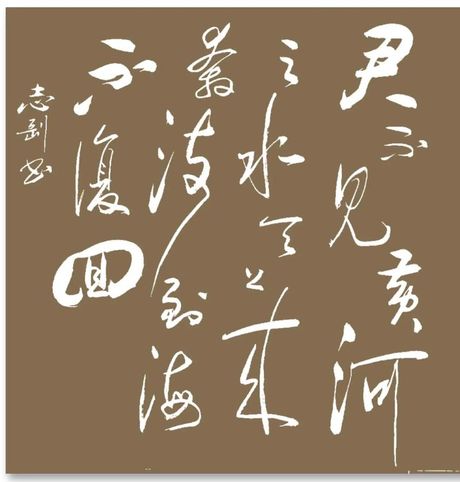 君不見黄河
之水天上来
奔流到海
不復回
志剛书